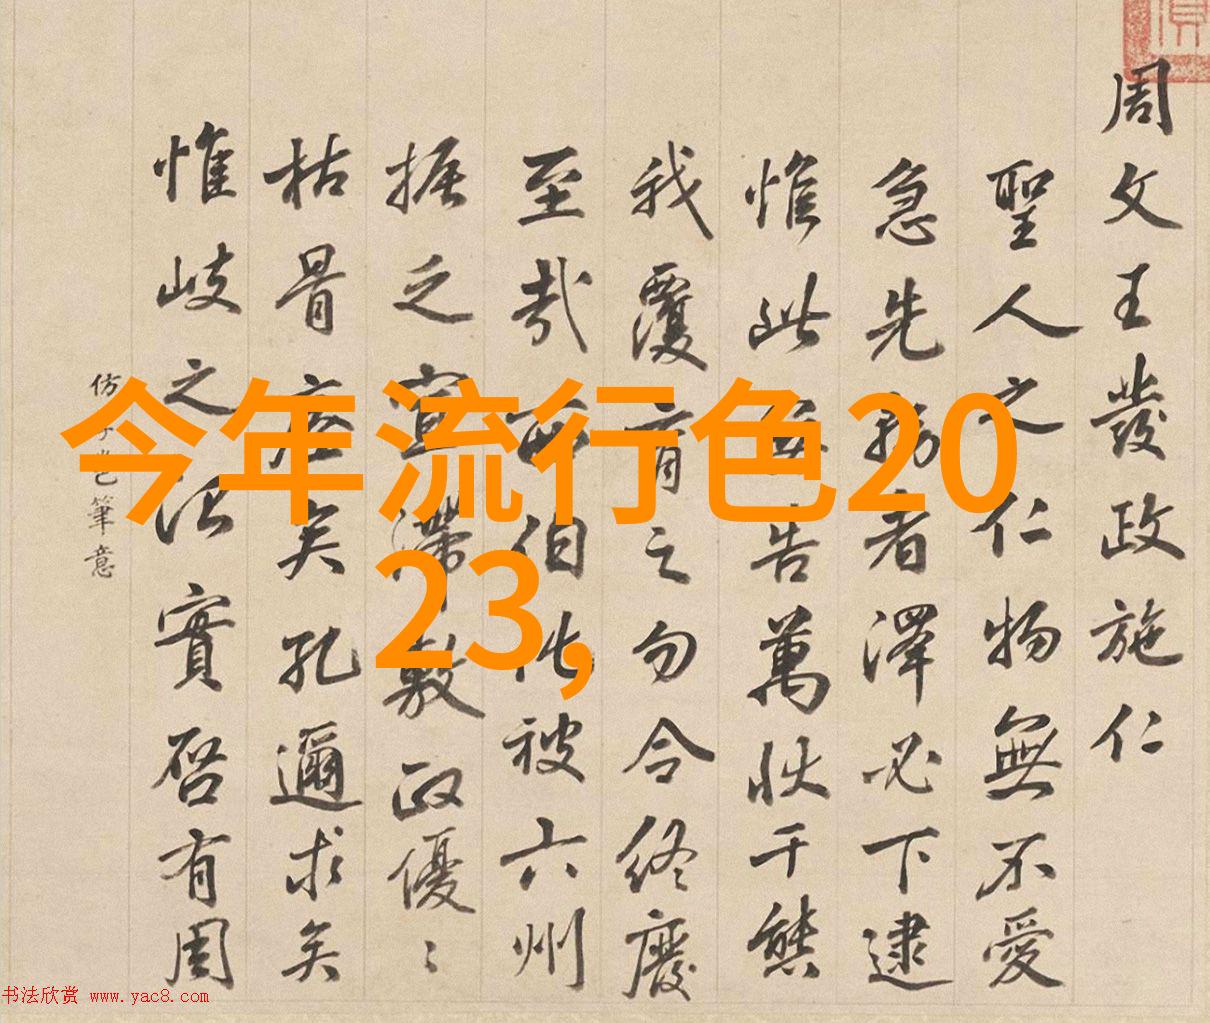 周文王發政施仁
聖人之仁物無不愛
急先務者澤必下逮
惟此告萬狀千態
我覆育之勿令終廢
至哉西伯化被六州
振之宣滯敷政優〻
枯骨矣孔邇求矣
惟岐之治實啓有周
仿筆意
今年流行色20
23,
书法欣赏 www.yac8.com